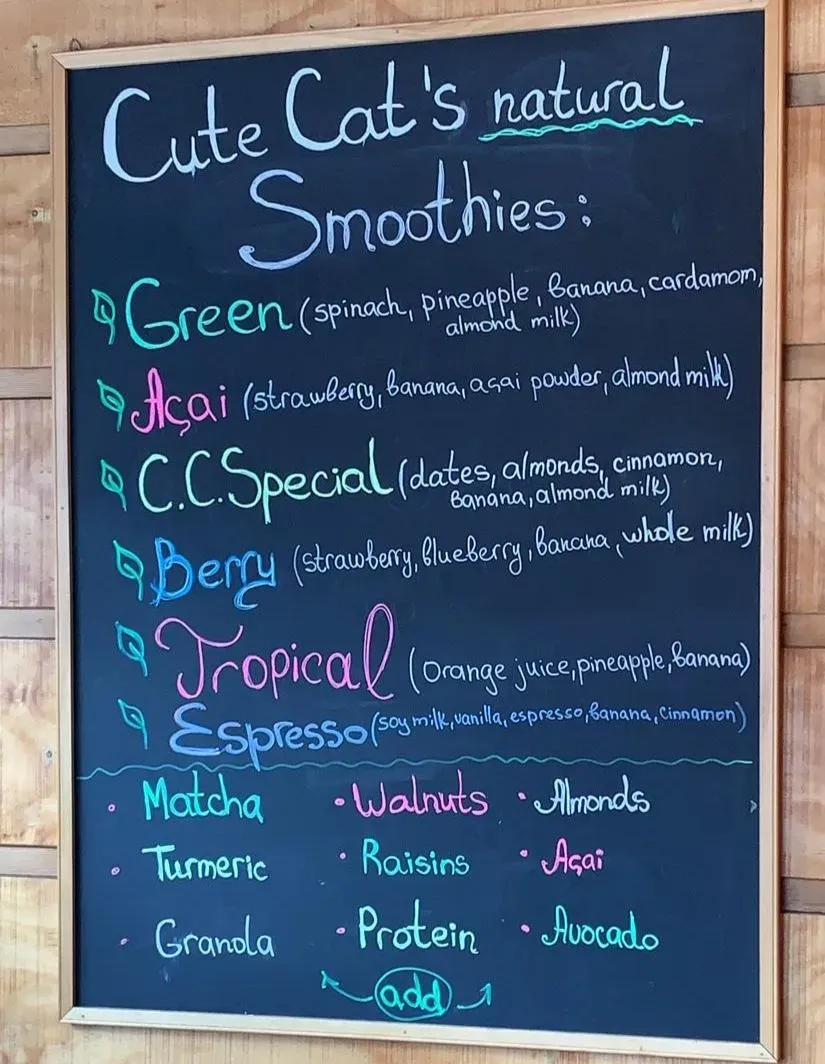 Cute Cat's natural
Smoothies:
Green (spinach, pineapple, banana, cardamom,
almond milk)
Açai (strawberry, banana, açai powder, almond milk)
C.C. Special (dates, almonds, cinnamon,
banana, almond milk)
Berry (strawberry, blueberry, banana, whole milk)
Tropical (orange juice, pineapple, banana)
Espresso (soy milk, vanilla, espresso, banana, cinnamon)
• Matcha • Walnuts • Almonds
• Turmeric • Raisins • Açai
• Granola • Protein • Avocado
add